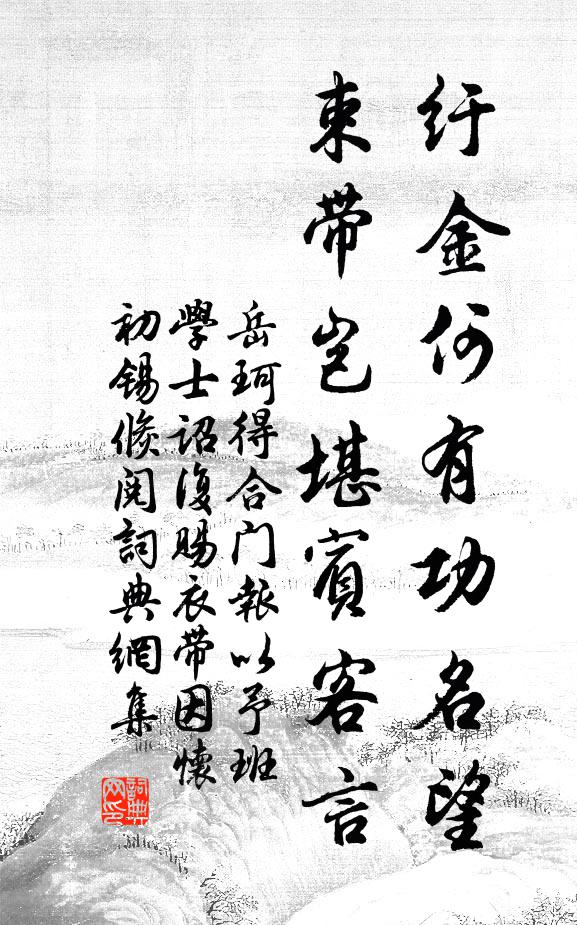 纡金何有功名望
束带岂堪宾客言
岳珂得合门報以予班
學士诏復赐衣带因懷
初錫倏阅詞典網集
詞典
网印